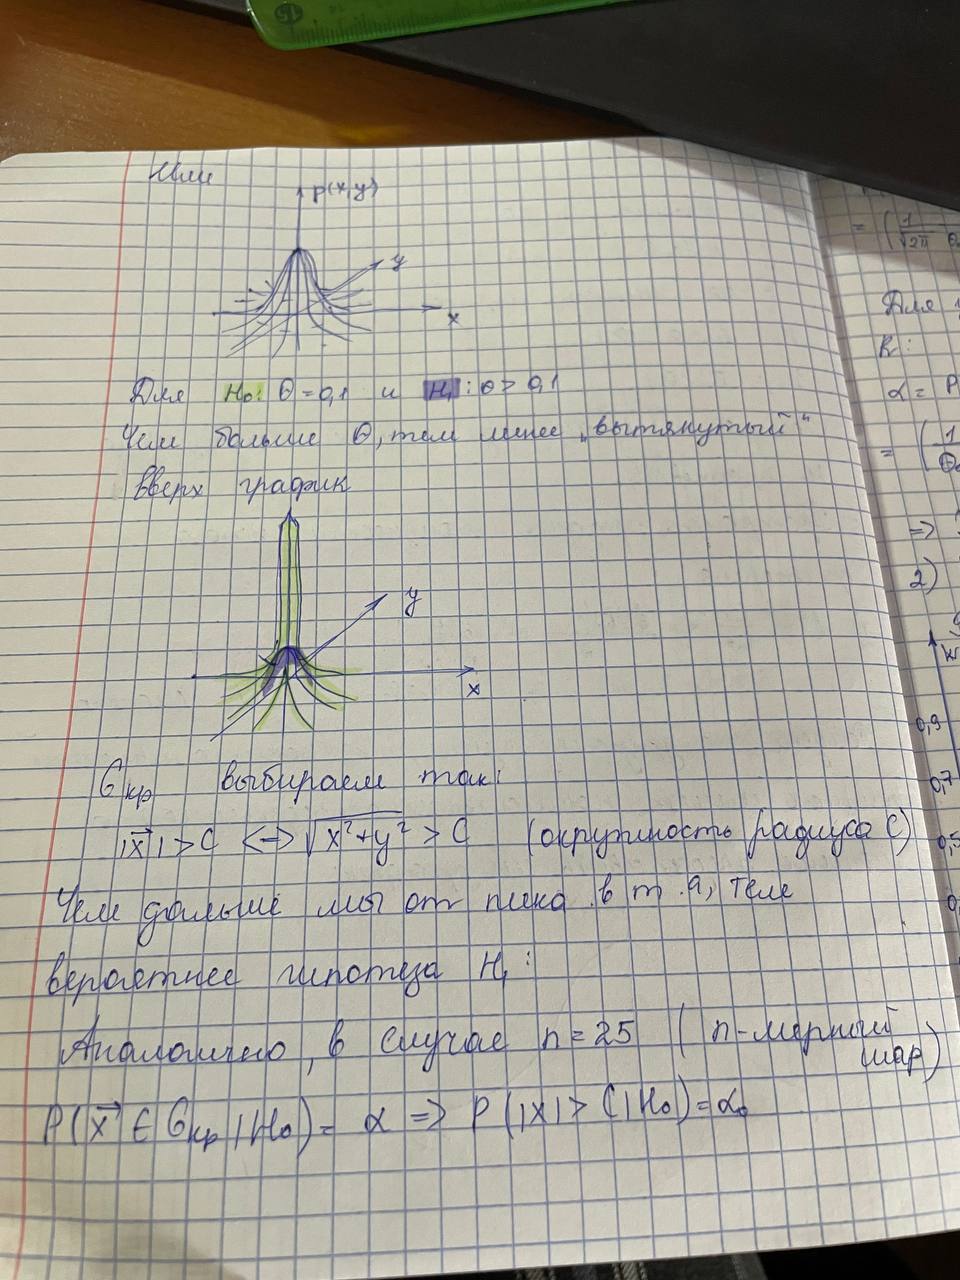 Или
P(x,y)
y
x
Для H₀: θ=0,1 и H₁: θ>0,1
Чем больше θ, тем менее „вытянутый“
вверх график
y
x
Gкр выбираем так:
|x⃗|>C <=> √(x²+y²) > C (окружность радиуса C)
Чем дальше мы от пика в т. a, тем
вероятнее гипотеза H₁:
Аналогично, в случае n=25 (n-мерный
шар)
P(x⃗ ∈ Gкр | H₀) = α => P(|x| > C | H₀) = α₀
15
= (1/√2π
Для
R:
α = P
= (1/θ₀
=>
2)
0,9
0,7